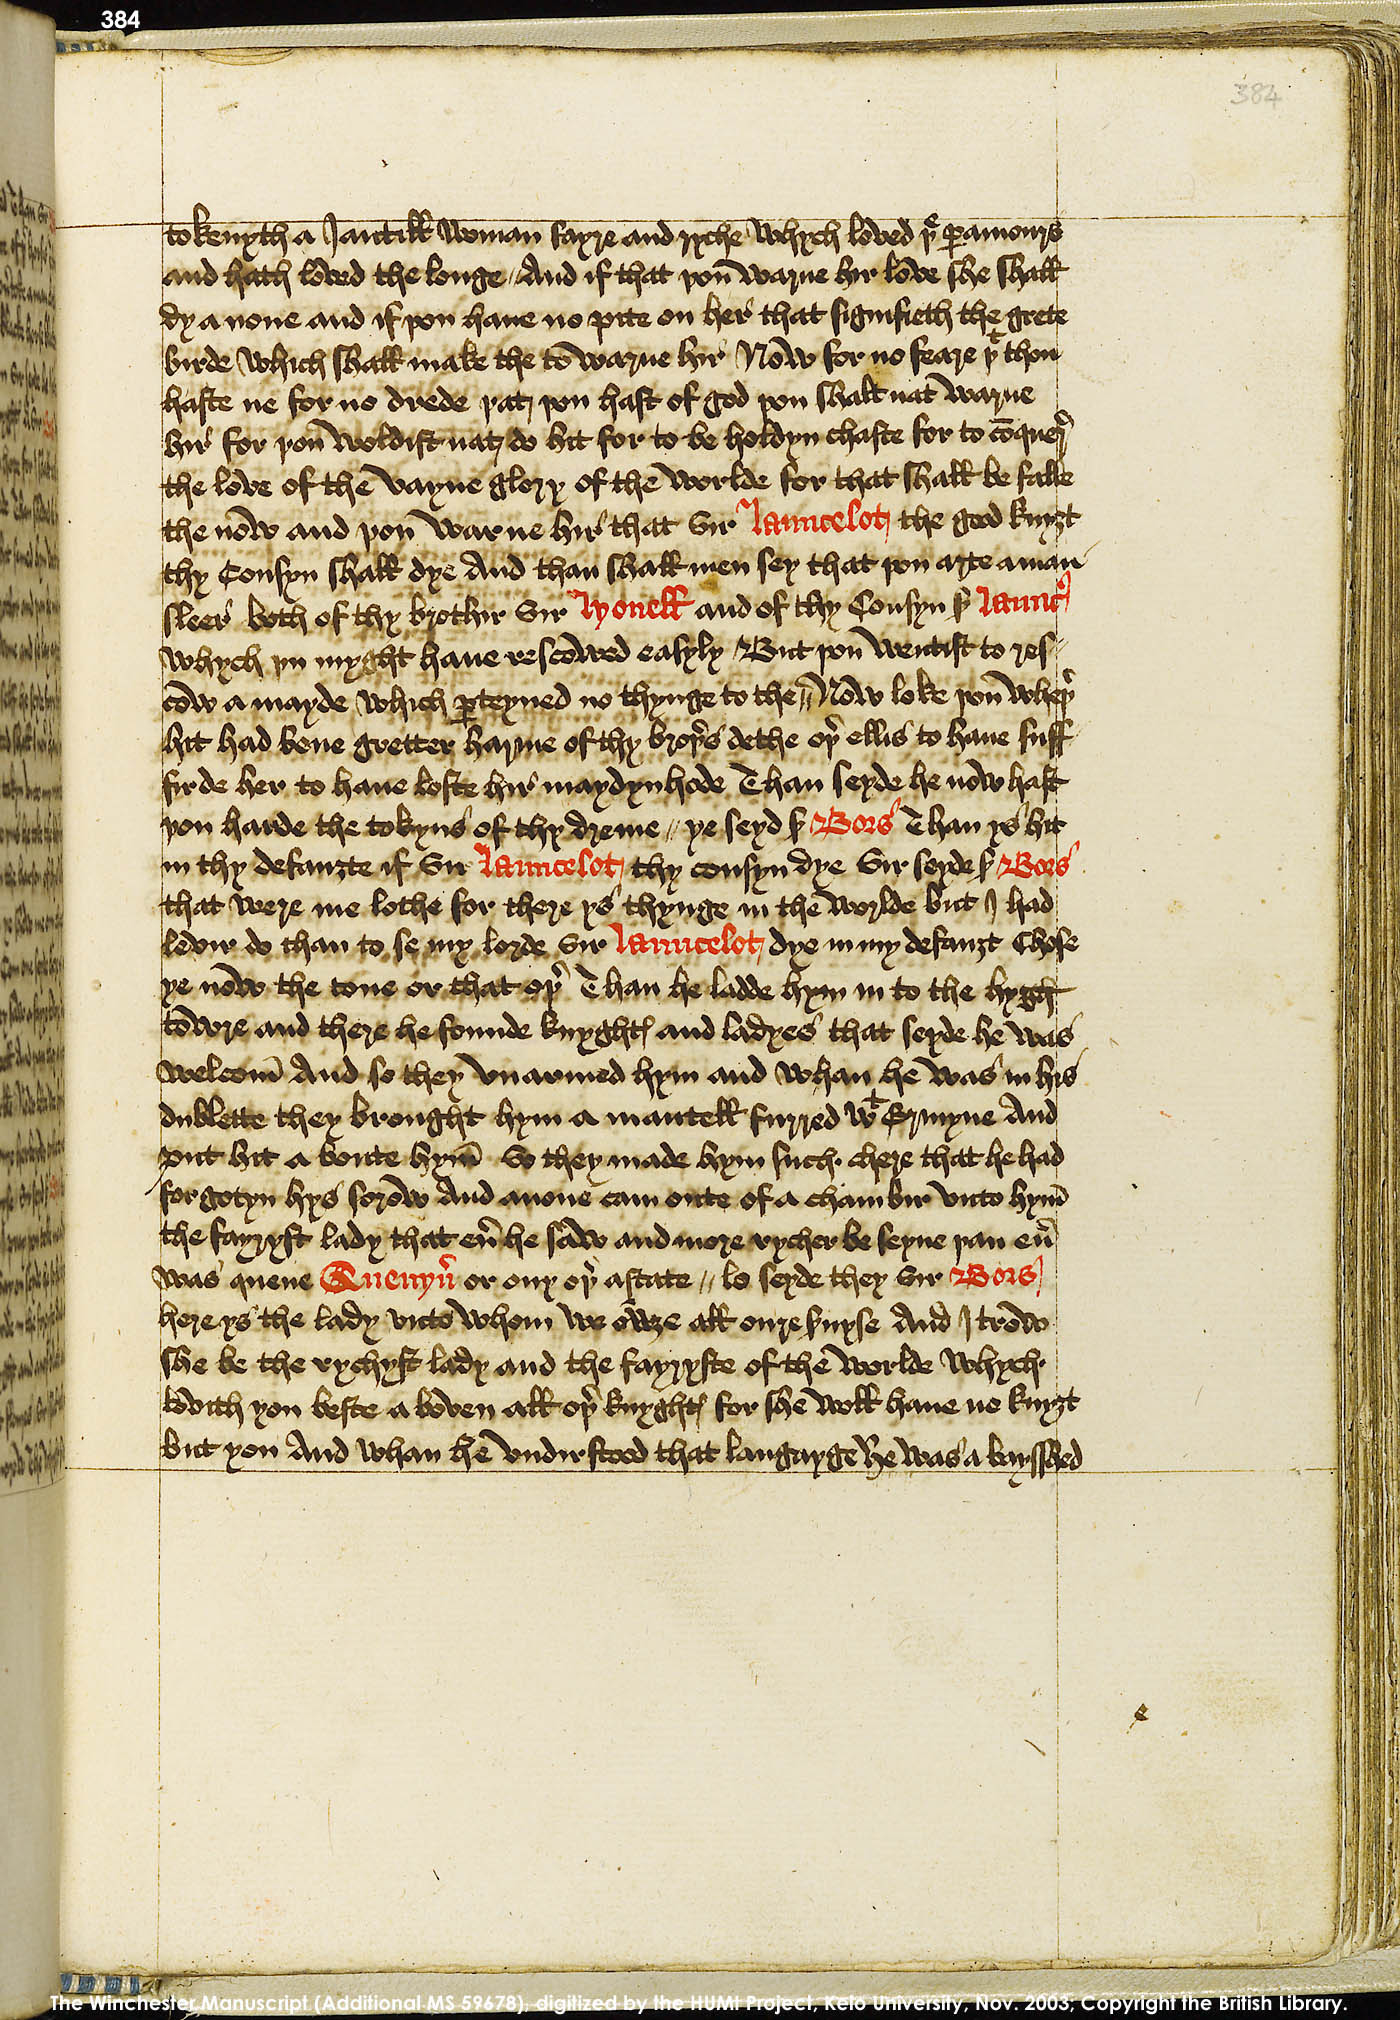 384
384
tokenyth a Jantill woman fayre and ryche whych loved þe paramours
and hath loved the longe // And if that þou warne hir love she shall
dy a none and if þou have no pite on her that signifieth the grete
birde which shall make the to warne hir Now for no feare þt thou
haste ne for no drede þat þou hast of god þou shalt nat warne
hir for þou woldist nat do hit for to be holdyn chaste for to cōquer
the love of the vayne glory of the worlde for that shall be falle
the now and þou warne hir that Sir Launcelot the good knyȝt
thy Cousyn shall dye And than shall men sey that þou arte a man
sleer both of thy brothir Sir Lyonell and of thy Cousyn sr Launc
whych þu myght have rescowed easyly But þou wentist to res
cow a mayde which perteyned no thynge to the // Now loke þou wheþer
hit had bene gretter harme of thy broþers dethe oþer ellis to have suff
firde her to have loste hir maydynhode Than seyde he now hast
þou harde the tokyns of thy dreme // ye seyd sr Bors Than ys hit
in thy defauȝte if Sir Launcelot thy cousyn dye Sir seyde sr Bors
that were me lothe for there ys thynge in the worlde but I had
levir do than to se my lorde Sir Launcelot dye in my defauȝt Chose
ye now the tone or that oþer Than he ladde hym in to the hygh
towre and there he founde knyghtes and ladyes that seyde he was
welcom̄ And so they unarmed hym and whan he was in his
dublette they brought hym a mantell furred wt Ermyne And
put hit a boute hym̄ So they made hym such chere that he had
forgotyn hys sorow And anone cam oute of a chambir unto hym̄
the fayryst lady that ever he saw and more rycher be seyne þan ever
was quene Guenyver or ony oþer astate // lo seyde they Sir Bors
here ys the lady unto whom we owȝe all oure servyse And I trow
she be the rychyst lady and the fayryste of the worlde whych
lovith you beste a boven all oþer knyghtes for she woll have no knyȝt
but you And whan he undirstood that langayge he was a bayshed
The Winchester Manuscript (Additional MS 59678), digitized by the HUMI Project, Keio University, Nov. 2003; Copyright the British Library.